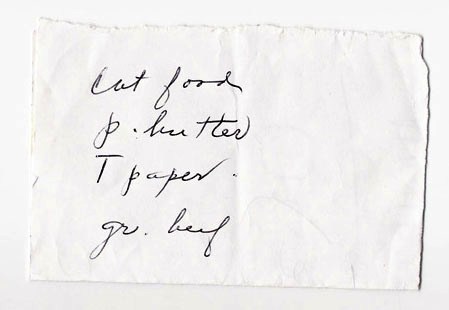 cat food
p. butter
T paper.
gr. beef